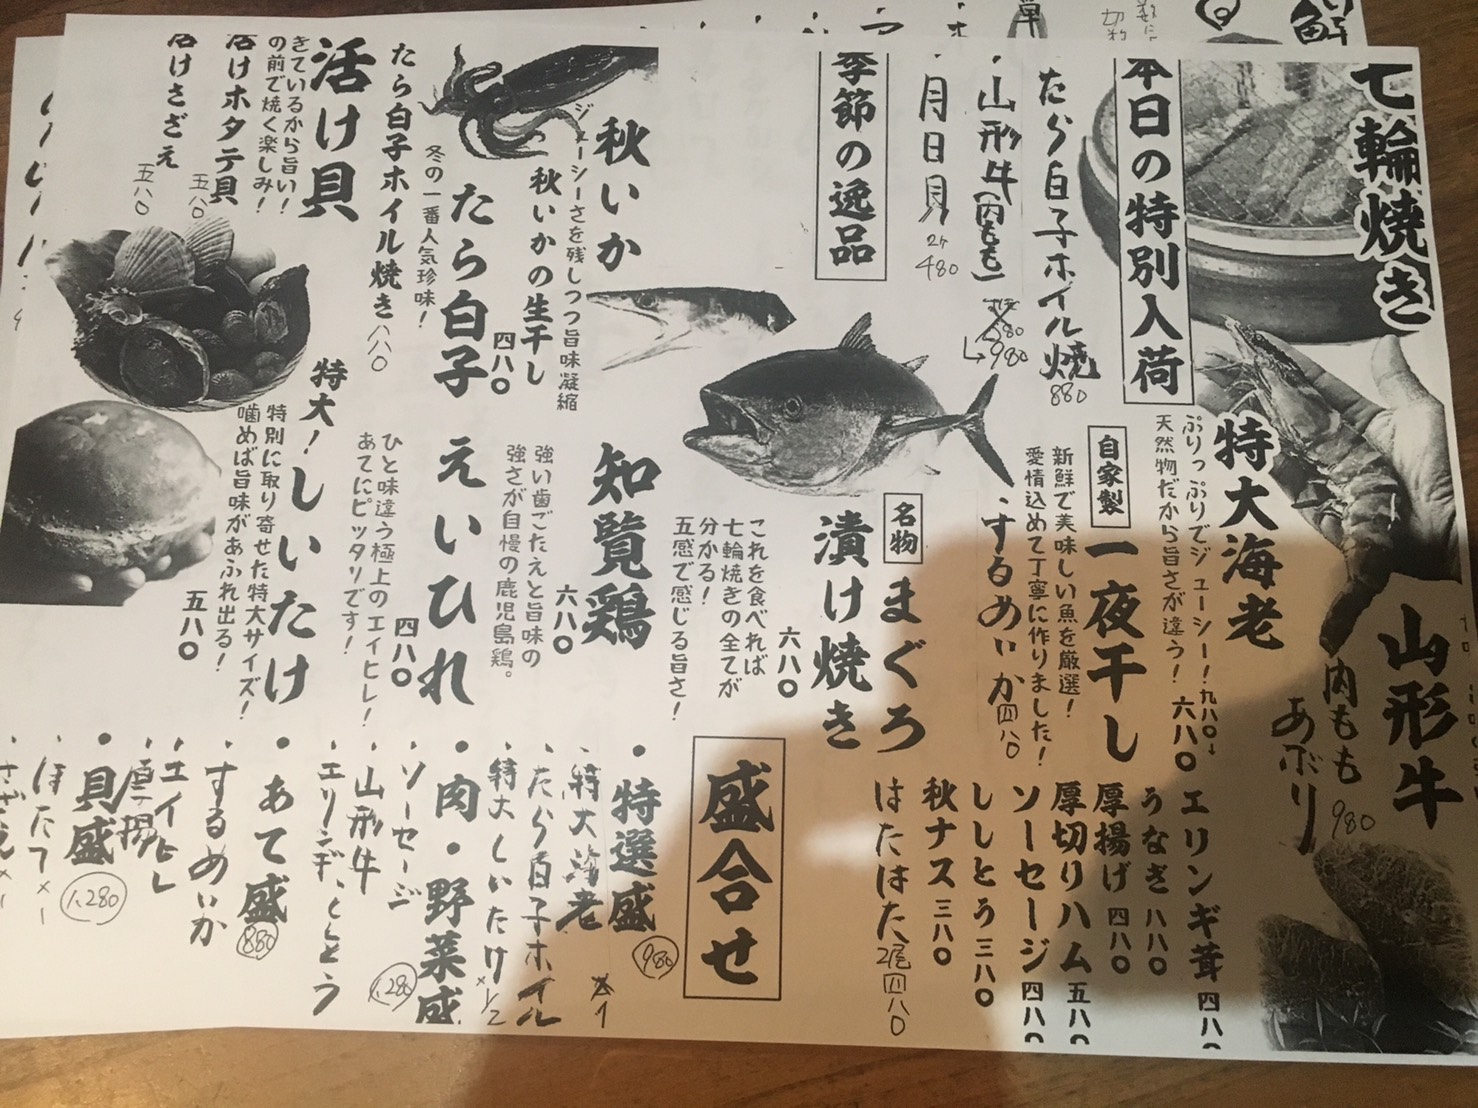 七輪焼き
本日の特別入荷
たら白子ホイル焼
880
・山形牛(内もも)
980
・月日貝
2ケ
480
季節の逸品
山形牛
内もも
あぶり
980
特大海老
ぷりっぷりでジューシー！
天然物だから旨さが違う！
九八〇
六八〇
自家製
一夜干し
新鮮で美味しい魚を厳選！
愛情込めて丁寧に作りました！
・するめいか
四八〇
名物
まぐろ
漬け焼き
六八〇
これを食べれば
七輪焼きの全てが
分かる！
五感で感じる旨さ！
エリンギ茸 四八〇
うなぎ 八八〇
厚揚げ 四八〇
厚切りハム 五八〇
ソーセージ 四八〇
ししとう 三八〇
秋ナス 三八〇
はたはた 2尾 四八〇
秋いか
ジューシーさを残しつつ旨味凝縮
秋いかの生干し
四八〇
たら白子
冬の一番人気珍味！
たら白子ホイル焼き
八八〇
活け貝
きているから旨い！
の前で焼く楽しみ！
活けホタテ貝
五八〇
活けさざえ
五八〇
知覧鶏
六八〇
強い歯ごたえと旨味の
強さが自慢の鹿児島鶏。
えいひれ
四八〇
ひと味違う極上のエイヒレ！
あてにピッタリです！
特大！
しいたけ
特別に取り寄せた特大サイズ！
噛めば旨味があふれ出る！
五八〇
盛合せ
・特選盛
980
・特大海老
・たら白子ホイル
・特大しいたけ
×1/2
・肉・野菜盛
1,280
ソーセージ
・山形牛
・エリンギ・ししとう
・あて盛
880
・するめいか
・エイヒレ
・厚揚
・貝盛
1,280
・ほたて×1